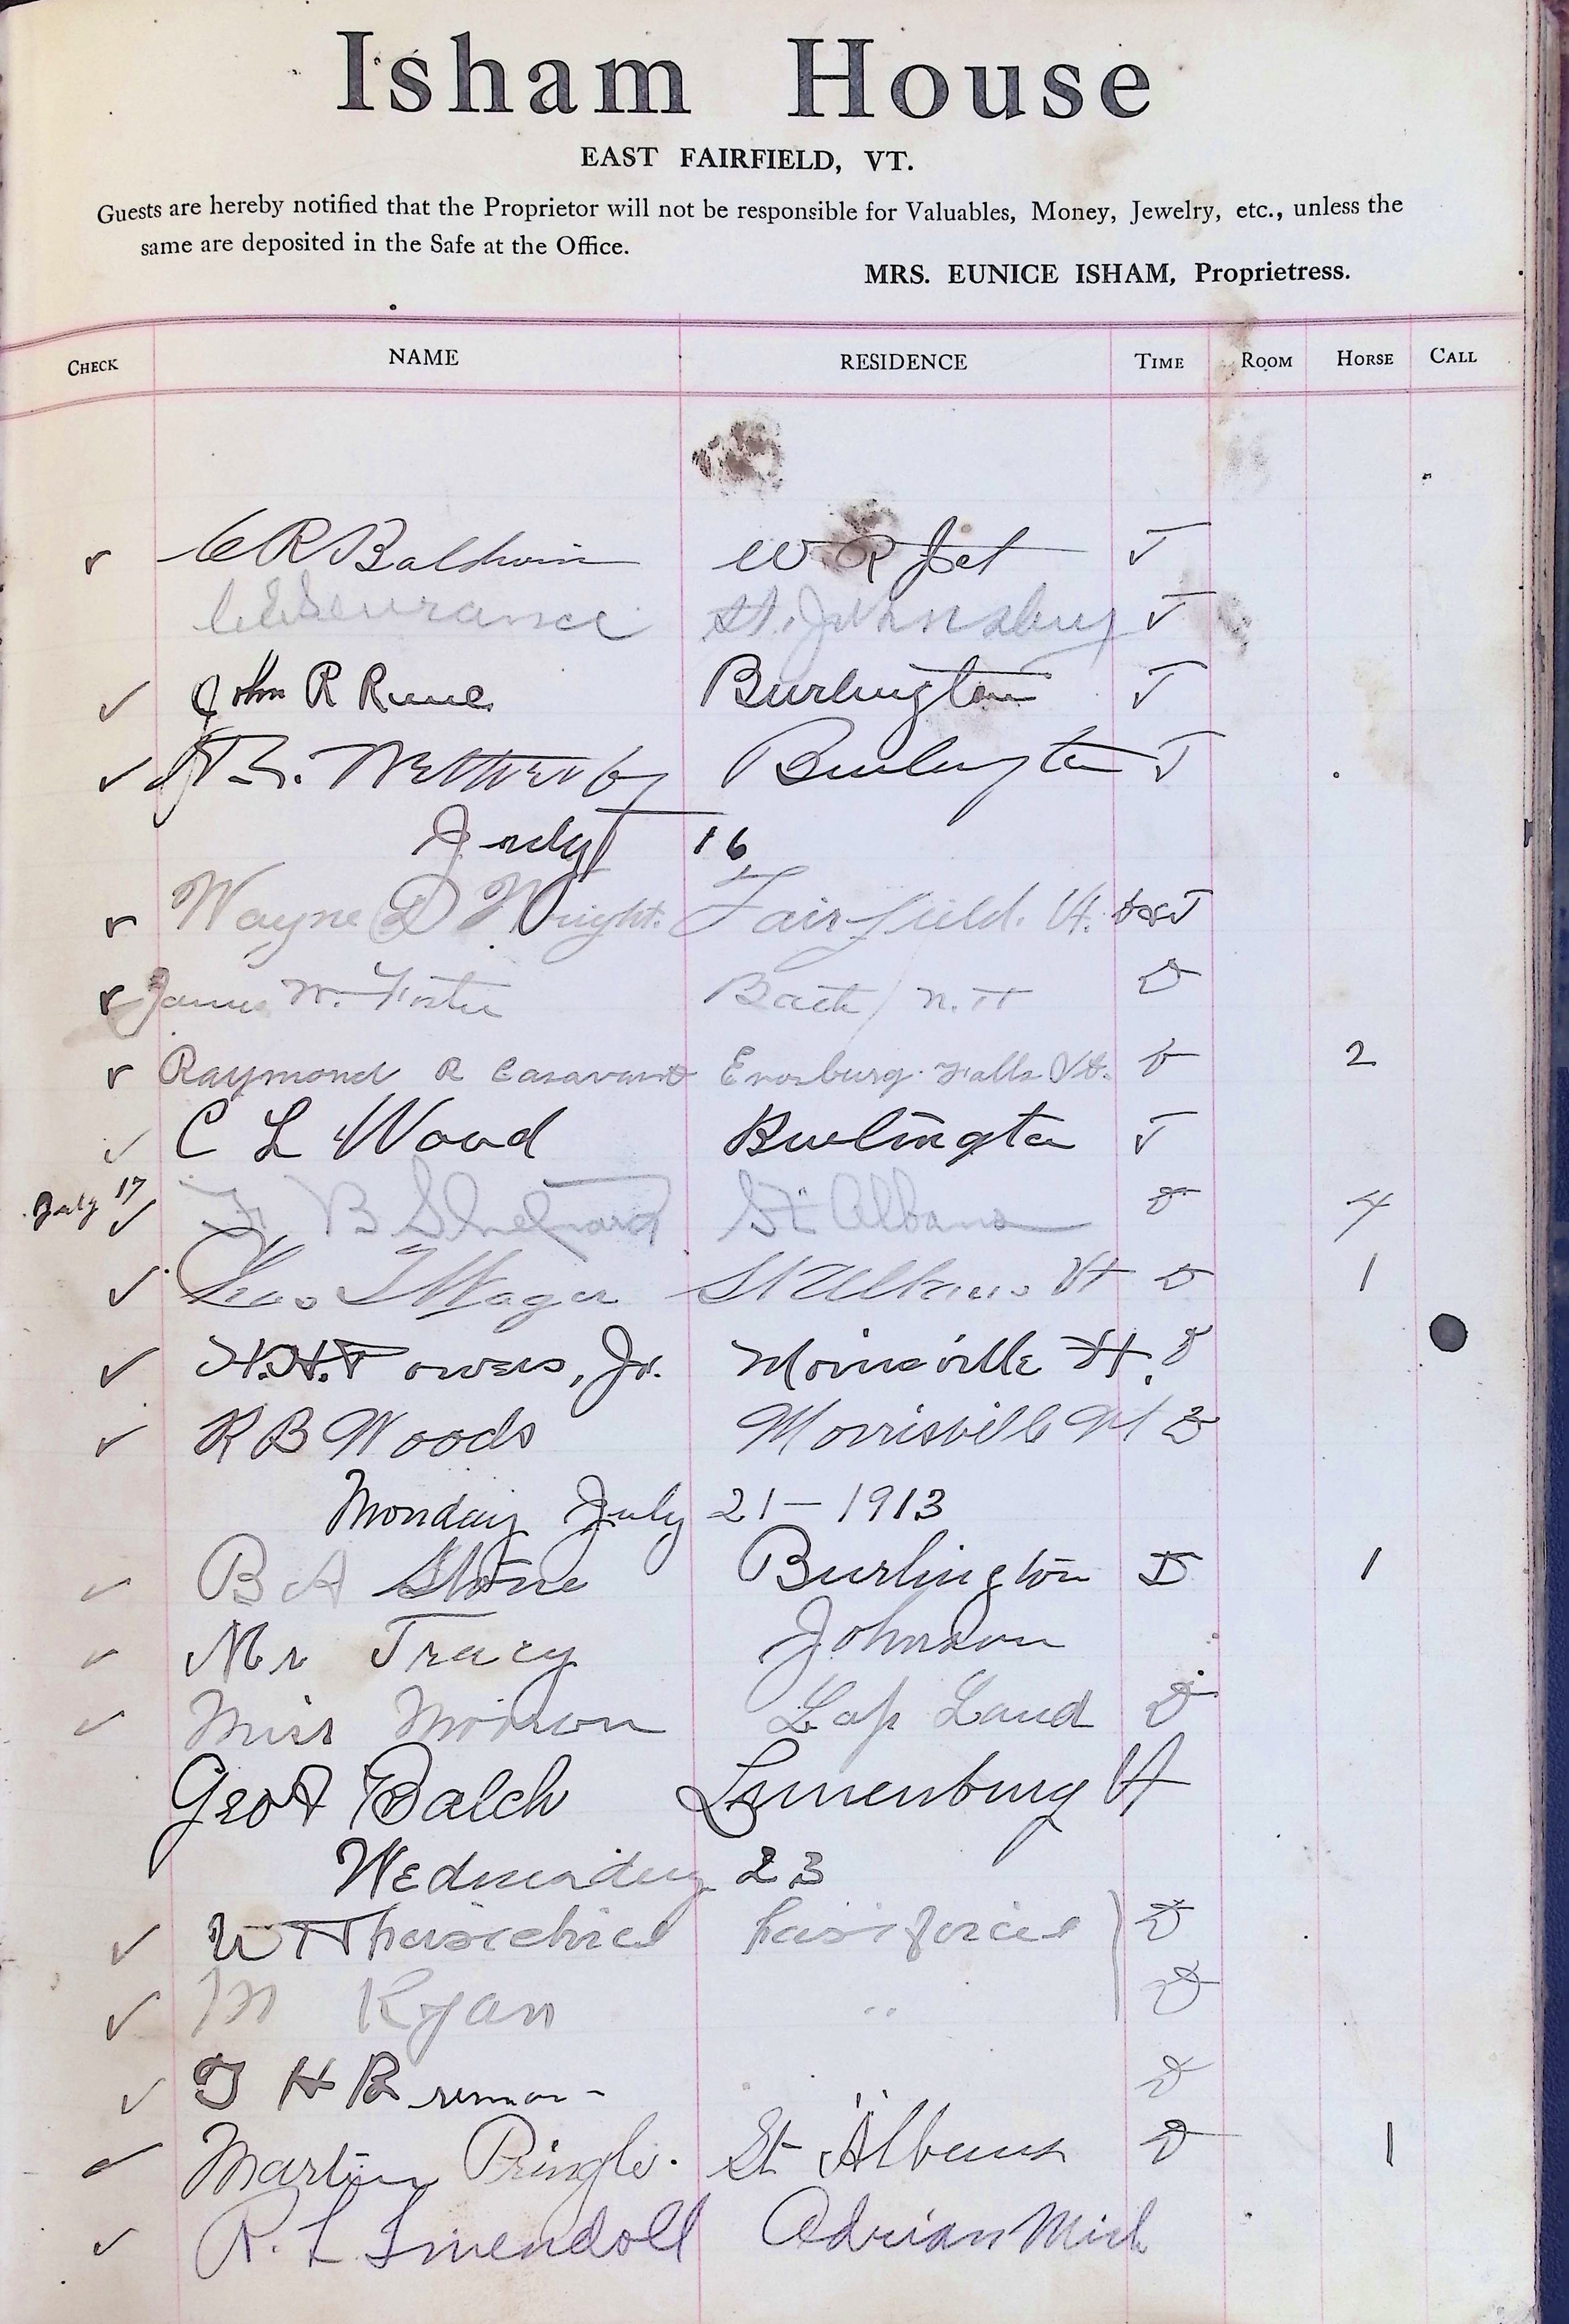 Isham House
EAST FAIRFIELD, VT.
Guests are hereby notified that the Proprietor will not be responsible for Valuables, Money, Jewelry, etc., unless the
same are deposited in the Safe at the Office.
MRS. EUNICE ISHAM, Proprietress.
CHECK NAME RESIDENCE TIME ROOM HORSE CALL
✓ C R Baldwin W R Jct T
St. Johnsbury T
✓ John R Burlington T
✓ Burlington T
July 16
✓ Wayne D Wright. Fairfield. Vt.
✓ James W. Foster Bath N. H D
✓ Raymond R Casavant Enosburg Falls Vt. 2
✓ C L Wood Burlington T
July 17 ✓ B Shepard St Albans D 4
✓ Wager St Albans Vt D 1
✓ H. H. Powers, Jr. Morrisville Vt. D
✓ R B Woods Morrisville Vt D
Monday July 21 — 1913
✓ B A Stone Burlington D 1
✓ Mr Tracy Johnson
✓ Miss Lap Land D
Geo A Balch Lunenburg Vt
Wednesday 23
✓ D
✓ M Ryan " D
✓ H D
✓ Martin Pringle. St Albans D 1
✓ R. L. Smendoll Adrian Mich